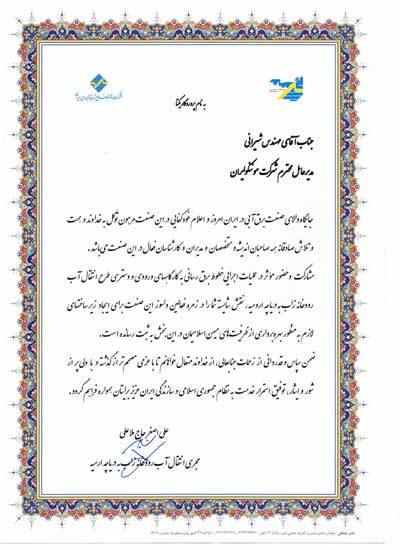 به نام پروردگار یکتا
جناب آقای مهندس شیرانی
مدیرعامل محترم شرکت موننکو ایران
جایگاه والای صنعت برق آبی در ایران امروز و اعلام خودکفایی در این صنعت مرهون توکل به خداوند و همت
و تلاش صادقانه همه صاحبان اندیشه و متخصصان و مدیران و کارشناسان فعال در این صنعت می‌باشد.
مشارکت و حضور موثر در عملیات اجرایی خطوط برق رسانی به کارگاههای ورودی و دسترسی طرح انتقال آب
رودخانه زاب به دریاچه ارومیه، نقش شایسته شما را در زمره فعالین دلسوز این صنعت برای ایجاد زیرساختهای
لازم به منظور بهره‌برداری از ظرفیت‌های میهن اسلامیمان در این بخش به ثبت رسانده است.
ضمن سپاس و قدردانی از زحمات جنابعالی، از خداوند متعال خواهانم تا با عزمی مصمم‌تر از گذشته و با دلی پر از
شور و ایثار، توفیق استمرار خدمت به نظام جمهوری اسلامی و سازندگی ایران عزیز برایتان همواره فراهم گردد.
علی اصغر حاج ملاعلی
مجری انتقال آب رودخانه زاب به دریاچه ارومیه